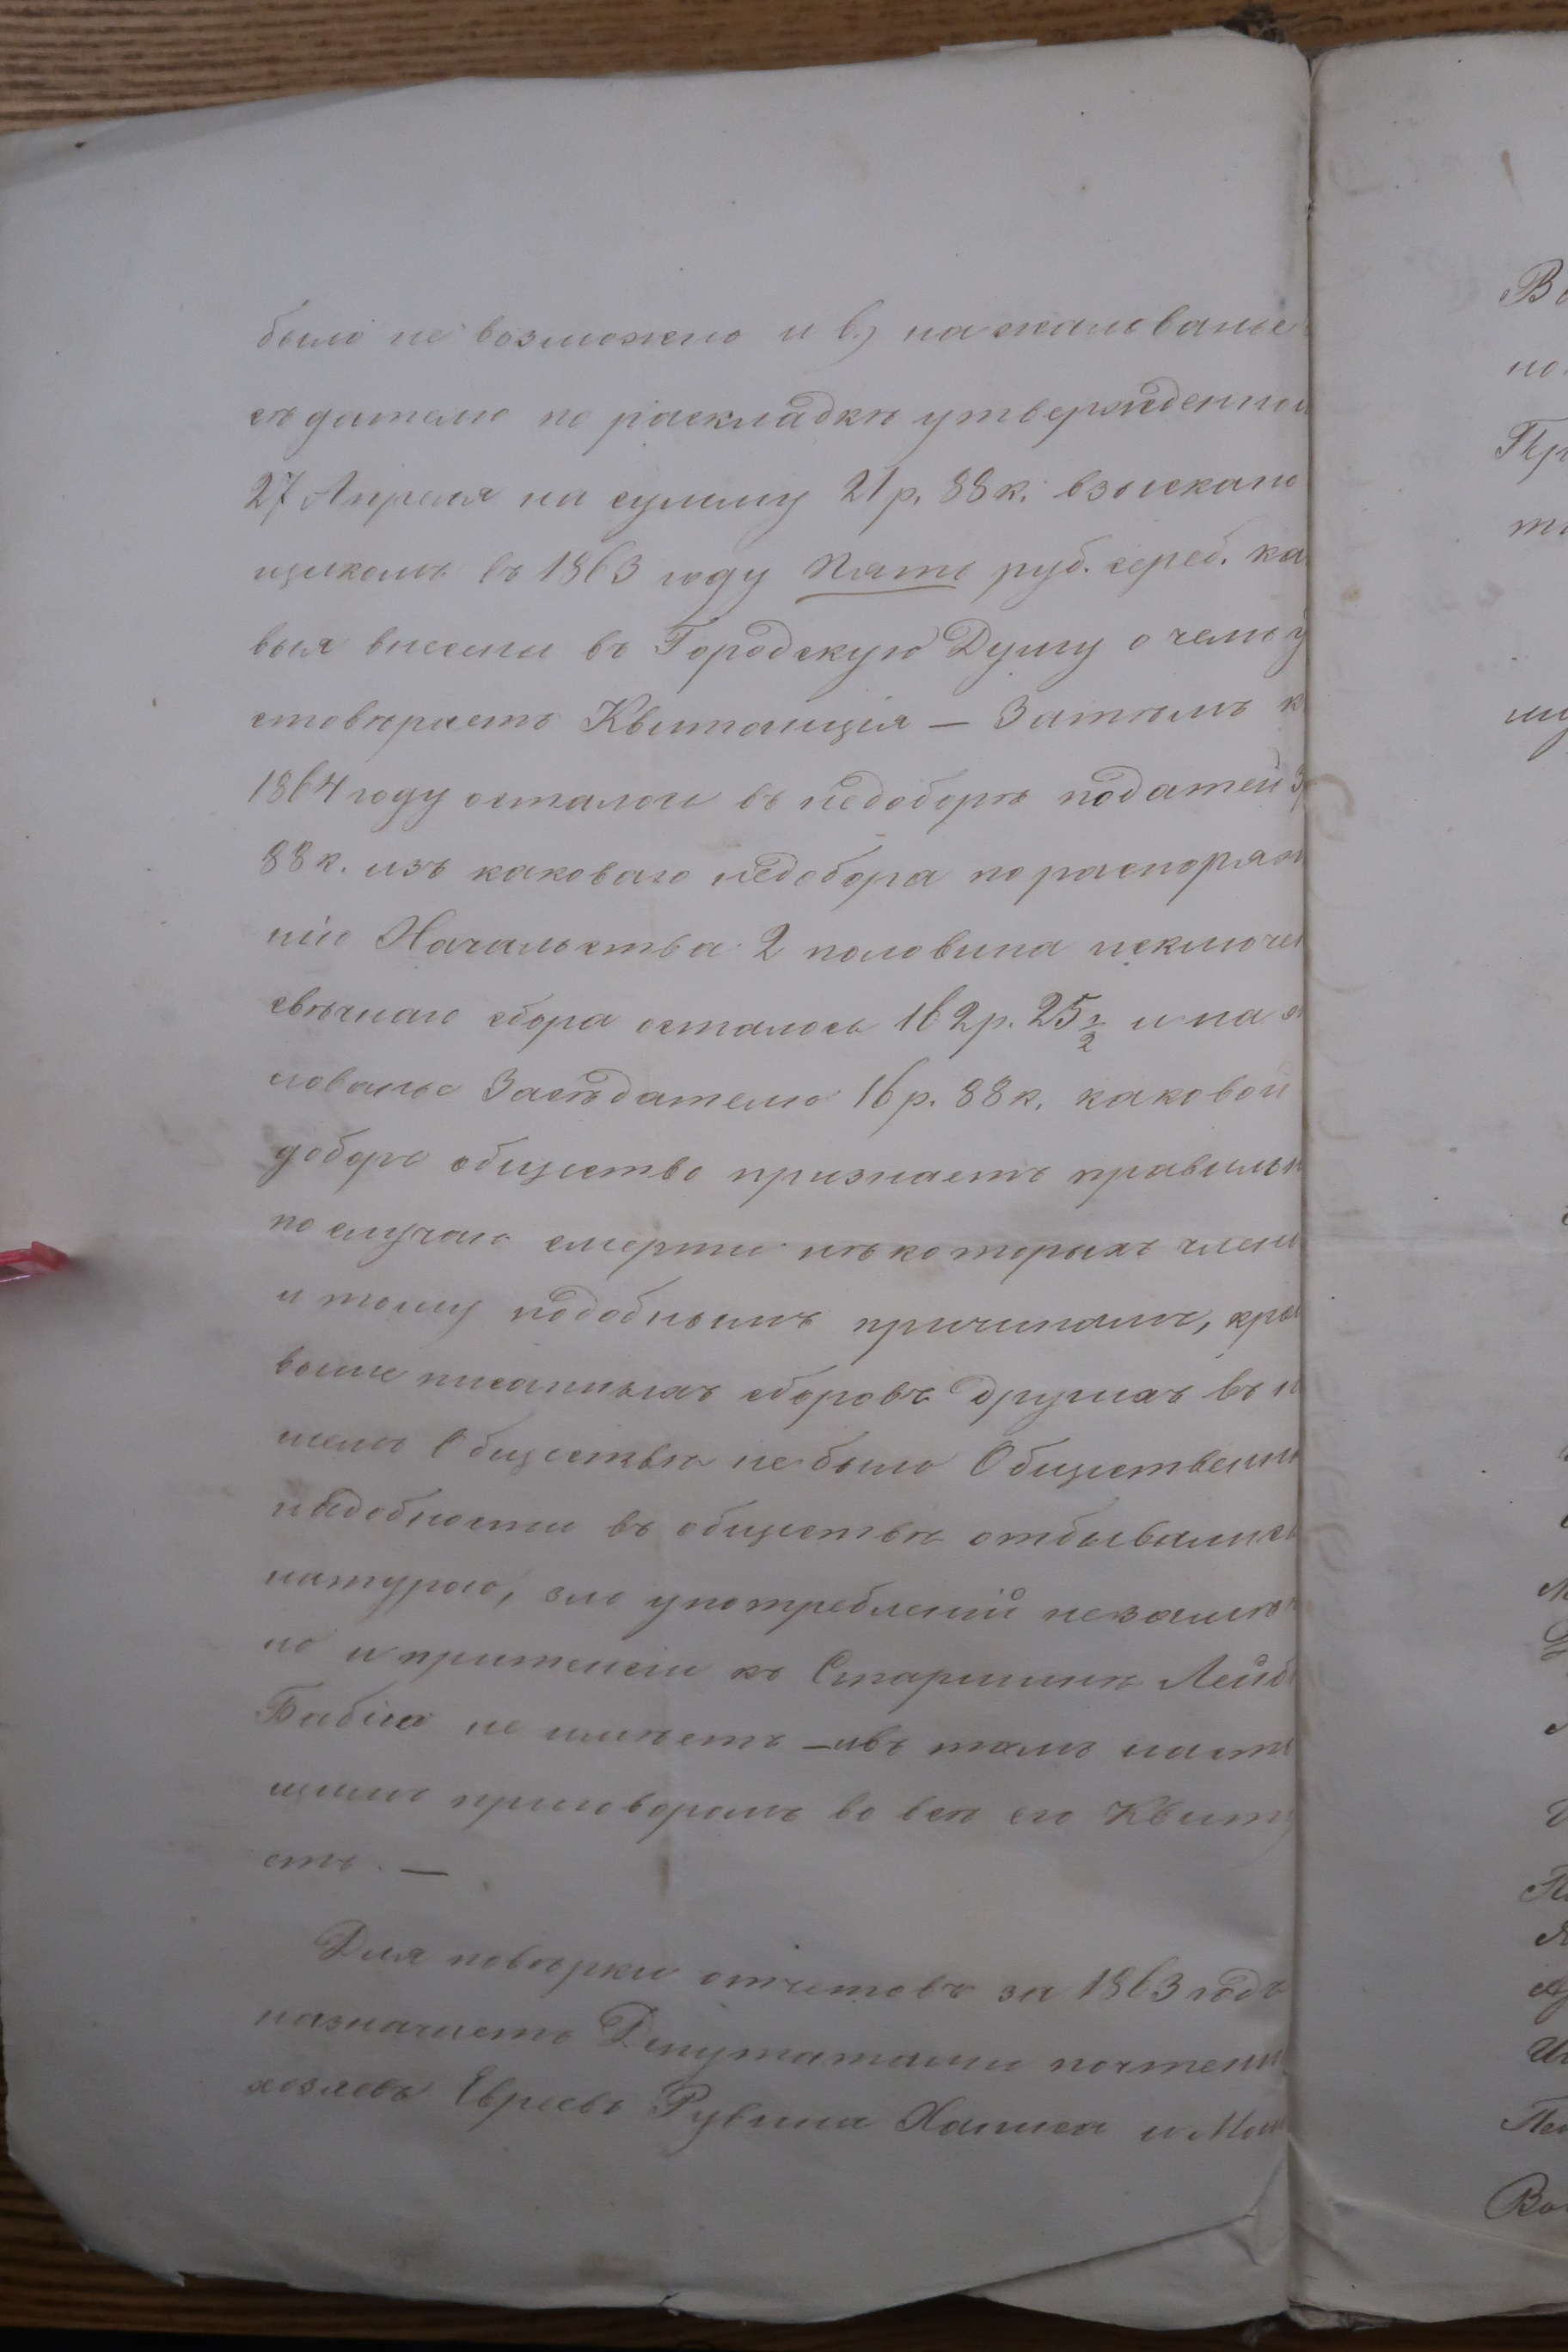 было не возможно и в.) на жалованье
съдателю по раскладкѣ утвержденной
27 Апреля на сумму 21 р. 88 к. взыскано
щикомъ въ 1863 году Пять руб. сереб. ка
выя внесены въ Городскую Думу о чемъ у
стовѣряетъ Квитанція — Затѣмъ к
1864 году осталось въ недоборѣ податей
88 к. изъ каковаго недобора по распоряж
нію Начальства 2 половина исключен
свѣчнаго сбора осталось 162 р. 25 1/2 и на
лованье Засѣдателю 16 р. 88 к. каковой
доборъ общество признаетъ правильн
по случаю смерти нѣкоторыхъ член
и тому подобнымъ причинамъ, кро
выше писанныхъ сборовъ другихъ въ н
шемъ Обществѣ не было Общественн
надобности въ обществѣ отбывались
натурою, зло употребленій незамѣч
но и притенсіи къ Старшинѣ Лейб
Бабіна не имѣетъ — въ томъ насто
щимъ приговоромъ во всѣ его Квит
етъ. —
Для повѣрки отчетовъ за 1863 годъ
назначаетъ Депутатами почтенн
хозяевъ Евреевъ Рувина и Мов
Во
но
Пр
ти